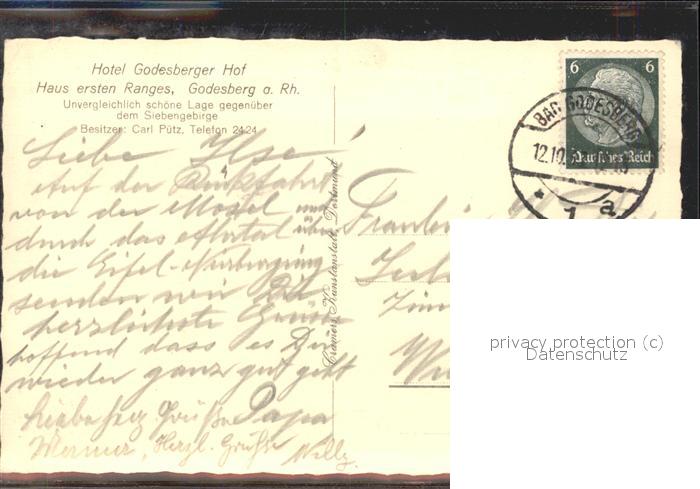 Hotel Godesberger Hof
Haus ersten Ranges, Godesberg a. Rh.
Unvergleichlich schöne Lage gegenüber
dem Siebengebirge
Besitzer: Carl Pütz, Telefon 2424
Liebe Ilse
Auf der Rückfahrt
von der Mosel und
durch das Ahrtal über
die Eifel-Nürburgring
senden wir Dir
herzlichste Grüße
hoffend dass es Dir
wieder ganz gut geht
Grüsse Papa
Werner, Herzl. Grüsse
Willy
Cramers Kunstanstalt, Dortmund
6 6
Deutsches Reich
BAD GODESBERG
12.10.
* 1 a
Fräulein
privacy protection (c)
Datenschutz